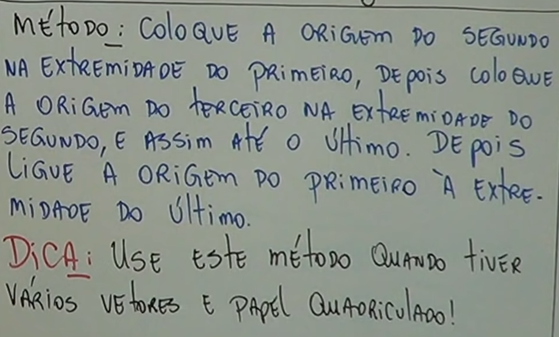 MÉTODO: COLOQUE A ORIGEM DO SEGUNDO
NA EXTREMIDADE DO PRIMEIRO, DEPOIS COLOQUE
A ORIGEM DO TERCEIRO NA EXTREMIDADE DO
SEGUNDO, E ASSIM ATÉ O ÚLTIMO. DEPOIS
LIGUE A ORIGEM DO PRIMEIRO À EXTRE-
MIDADE DO ÚLTIMO.
DICA: USE ESTE MÉTODO QUANDO TIVER
VÁRIOS VETORES E PAPEL QUADRICULADO!